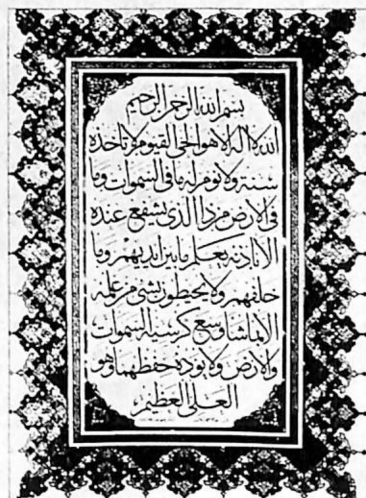 بسم الله الرحمن الرحيم
الله لا اله الا هو الحي القيوم لا تاخذه
سنة ولا نوم له ما في السموات وما
في الارض من ذا الذي يشفع عنده
الا باذنه يعلم ما بين ايديهم وما
خلفهم ولا يحيطون بشيء من علمه
الا بما شاء وسع كرسيه السموات
والارض ولا يؤده حفظهما وهو
العلي العظيم